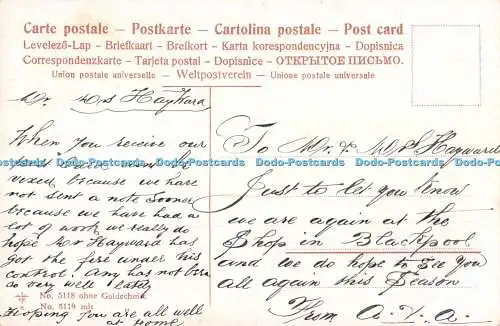 Carte postale – Postkarte – Cartolina postale – Post card
Levelező-Lap – Briefkaart – Brefkort – Karta korespondencyjna – Dopisnica
Correspondenzkarte – Tarjeta postal – Dopisnice – ОТКРЫТОЕ ПИСЬМО.
Union postale universelle – Weltpostverein – Unione postale universale
Mr Hayward
When you receive our
because we have
not sent a note sooner
because we have had a
lot of work we really do
hope Mr Hayward has
got the fire under his
control. Any has not been
so very well lately
No. 5118 ohne Goldschnitt
No. 5119 mit
Hoping you are all well
at home
To Mr. & Mrs Hayward
Dodo-Postcards Dodo-Postcards Dodo-Postcards Dodo-Postcards Dodo-Postcards Dodo-Postcards
Just to let you know
we are again at the
Shop in Blackpool
and we do hope to See you
all again this Season
From A.T.A.